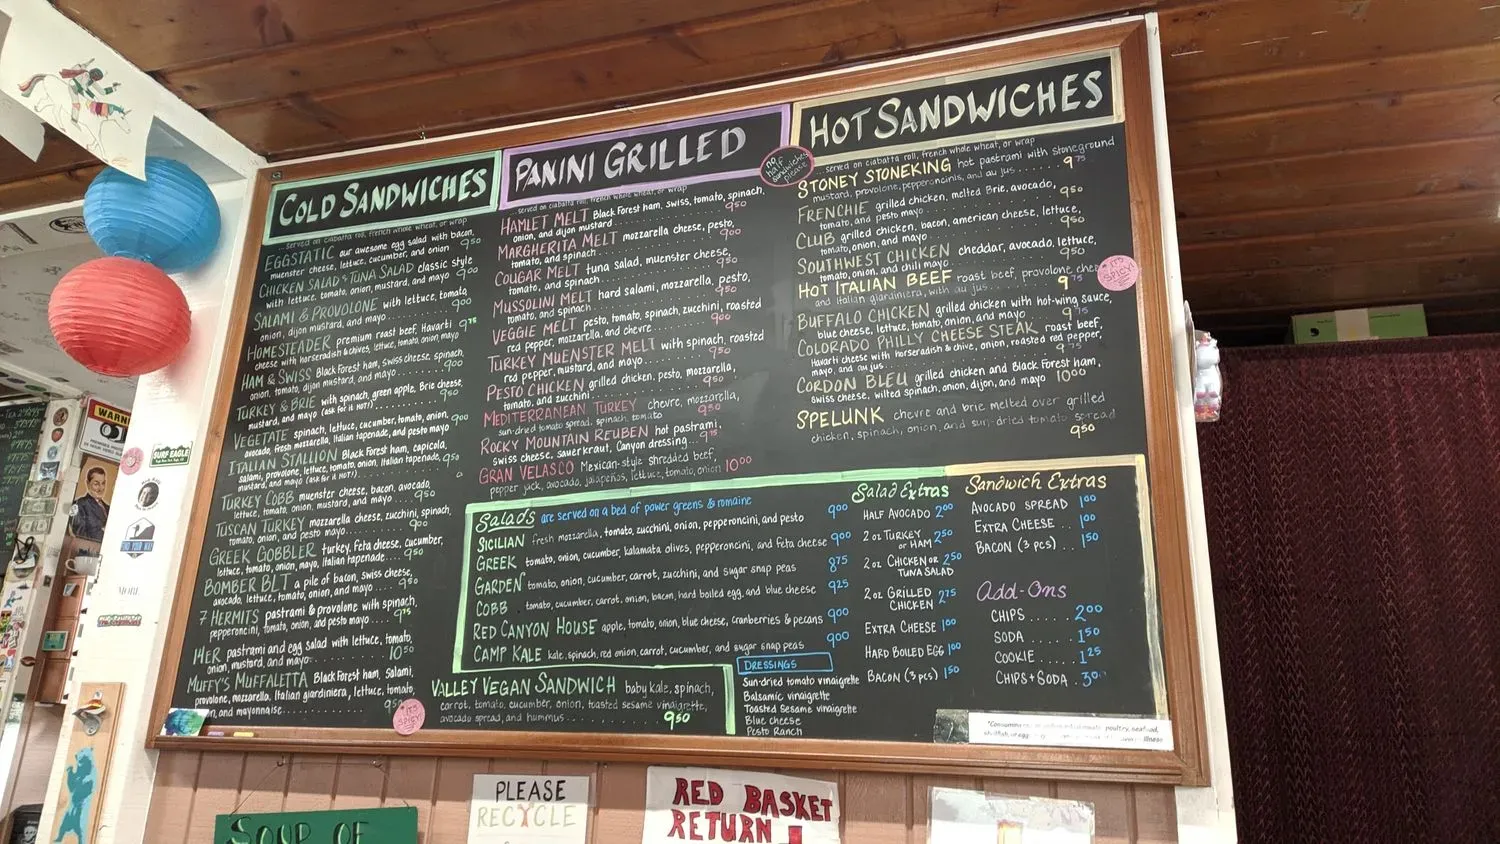 COLD SANDWICHES
...served on ciabatta roll, french whole wheat, or wrap
EGGSTATIC our awesome egg salad with bacon,
muenster cheese, lettuce, cucumber, and onion 9.50
CHICKEN SALAD & TUNA SALAD classic style
with lettuce, tomato, onion, mustard, and mayo 9.00
SALAMI & PROVOLONE with lettuce, tomato,
onion, dijon mustard, and mayo.... 9.00
HOMESTEADER premium roast beef, Havarti 9.75
cheese with horseradish & chives, lettuce, tomato, onion, mayo
HAM & SWISS Black Forest ham, swiss cheese, spinach,
onion, tomato, dijon mustard, and mayo.... 9.00
TURKEY & BRIE with spinach, green apple, Brie cheese,
mustard, and mayo (ask for it HOT!)..... 9.50
VEGETATE spinach, lettuce, cucumber, tomato, onion, 9.00
avocado, fresh mozzarella, Italian tapenade, and pesto mayo
ITALIAN STALLION Black Forest ham, capicola,
salami, provolone, lettuce, tomato, onion, Italian tapenade, 9.50
mustard, and mayo (ask for it HOT!)
TURKEY COBB muenster cheese, bacon, avocado,
lettuce, tomato, onion, mustard, and mayo.... 9.50
TUSCAN TURKEY mozzarella cheese, zucchini, spinach,
tomato, onion, and pesto mayo....... 9.00
GREEK GOBBLER turkey, feta cheese, cucumber,
lettuce, tomato, onion, mayo, Italian tapenade.... 9.50
BOMBER BLT a pile of bacon, swiss cheese,
avocado, lettuce, tomato, onion, and mayo.... 9.50
7 HERMITS pastrami & provolone with spinach,
pepperoncini, tomato, onion, and pesto mayo.... 9.75
14ER pastrami and egg salad with lettuce, tomato,
onion, mustard, and mayo.......... 10.50
MUFFY'S MUFFALETTA Black Forest ham, Salami,
provolone, mozzarella, Italian giardiniera, lettuce, tomato,
onion, and mayonnaise.............. 9.50
IT'S SPICY!
PANINI GRILLED
...served on ciabatta roll, french whole wheat, or wrap
no half sandwiches please
HAMLET MELT Black Forest ham, swiss, tomato, spinach,
onion, and dijon mustard........ 9.50
MARGHERITA MELT mozzarella cheese, pesto,
tomato, and spinach.............. 9.00
COUGAR MELT tuna salad, muenster cheese,
tomato, and spinach............ 9.50
MUSSOLINI MELT hard salami, mozzarella, pesto,
tomato, and spinach............ 9.50
VEGGIE MELT pesto, tomato, spinach, zucchini, roasted
red pepper, mozzarella, and chevre.... 9.00
TURKEY MUENSTER MELT with spinach, roasted
red pepper, mustard, and mayo...... 9.50
PESTO CHICKEN grilled chicken, pesto, mozzarella,
tomato, and zucchini........... 9.50
MEDITERRANEAN TURKEY chevre, mozzarella,
sun-dried tomato spread, spinach, tomato 9.50
ROCKY MOUNTAIN REUBEN hot pastrami,
swiss cheese, sauerkraut, Canyon dressing... 9.75
GRAN VELASCO Mexican-style shredded beef,
pepper jack, avocado, jalapeños, lettuce, tomato, onion 10.00
HOT SANDWICHES
...served on ciabatta roll, french whole wheat, or wrap
STONEY STONEKING hot pastrami with stoneground
mustard, provolone, pepperoncinis, and au jus...... 9.75
FRENCHIE grilled chicken, melted Brie, avocado,
tomato, and pesto mayo............ 9.50
CLUB grilled chicken, bacon, american cheese, lettuce,
tomato, onion, and mayo............ 9.50
SOUTHWEST CHICKEN cheddar, avocado, lettuce,
tomato, onion, and chili mayo........ 9.50
HOT ITALIAN BEEF roast beef, provolone
and Italian giardiniera, with au jus...... 9.75
IT'S SPICY!
BUFFALO CHICKEN grilled chicken with hot-wing sauce,
blue cheese, lettuce, tomato, onion, and mayo 9.75
COLORADO PHILLY CHEESE STEAK roast beef,
Havarti cheese with horseradish & chive, onion, roasted red pepper,
mayo, and au jus................ 9.75
CORDON BLEU grilled chicken and Black Forest ham,
swiss cheese, wilted spinach, onion, dijon, and mayo 10.00
SPELUNK chevre and brie melted over grilled
chicken, spinach, onion, and sun-dried tomato spread
9.50
Salads are served on a bed of power greens & romaine
SICILIAN fresh mozzarella, tomato, zucchini, onion, pepperoncini, and pesto 9.00
GREEK tomato, onion, cucumber, kalamata olives, pepperoncini, and feta cheese 9.00
GARDEN tomato, onion, cucumber, carrot, zucchini, and sugar snap peas 8.75
COBB . tomato, cucumber, carrot, onion, bacon, hard boiled egg, and blue cheese 9.25
RED CANYON HOUSE apple, tomato, onion, blue cheese, cranberries & pecans 9.00
CAMP KALE kale, spinach, red onion, carrot, cucumber, and sugar snap peas 9.00
VALLEY VEGAN SANDWICH baby kale, spinach,
carrot, tomato, cucumber, onion, toasted sesame vinaigrette,
avocado spread, and hummus........... 9.50
DRESSINGS
Sun-dried tomato vinaigrette
Balsamic vinaigrette
Toasted Sesame vinaigrette
Blue cheese
Pesto Ranch
Salad Extras
HALF AVOCADO 2.00
2 oz TURKEY
or HAM 2.50
2 oz CHICKEN OR 2.50
TUNA SALAD
2 oz GRILLED
CHICKEN 2.75
EXTRA CHEESE 1.00
HARD BOILED EGG 1.00
BACON (3 pcs) 1.50
Sandwich Extras
AVOCADO SPREAD 1.00
EXTRA CHEESE .. 1.00
BACON (3 PCS) . 1.50
Add-Ons
CHIPS ...... 2.00
SODA ...... 1.50
COOKIE .... 1.25
CHIPS + SODA . 3.00
WARNING
SURF EAGLE
FIND YOUR WAY
SOUP OF
PLEASE
RECYCLE
RED BASKET
RETURN